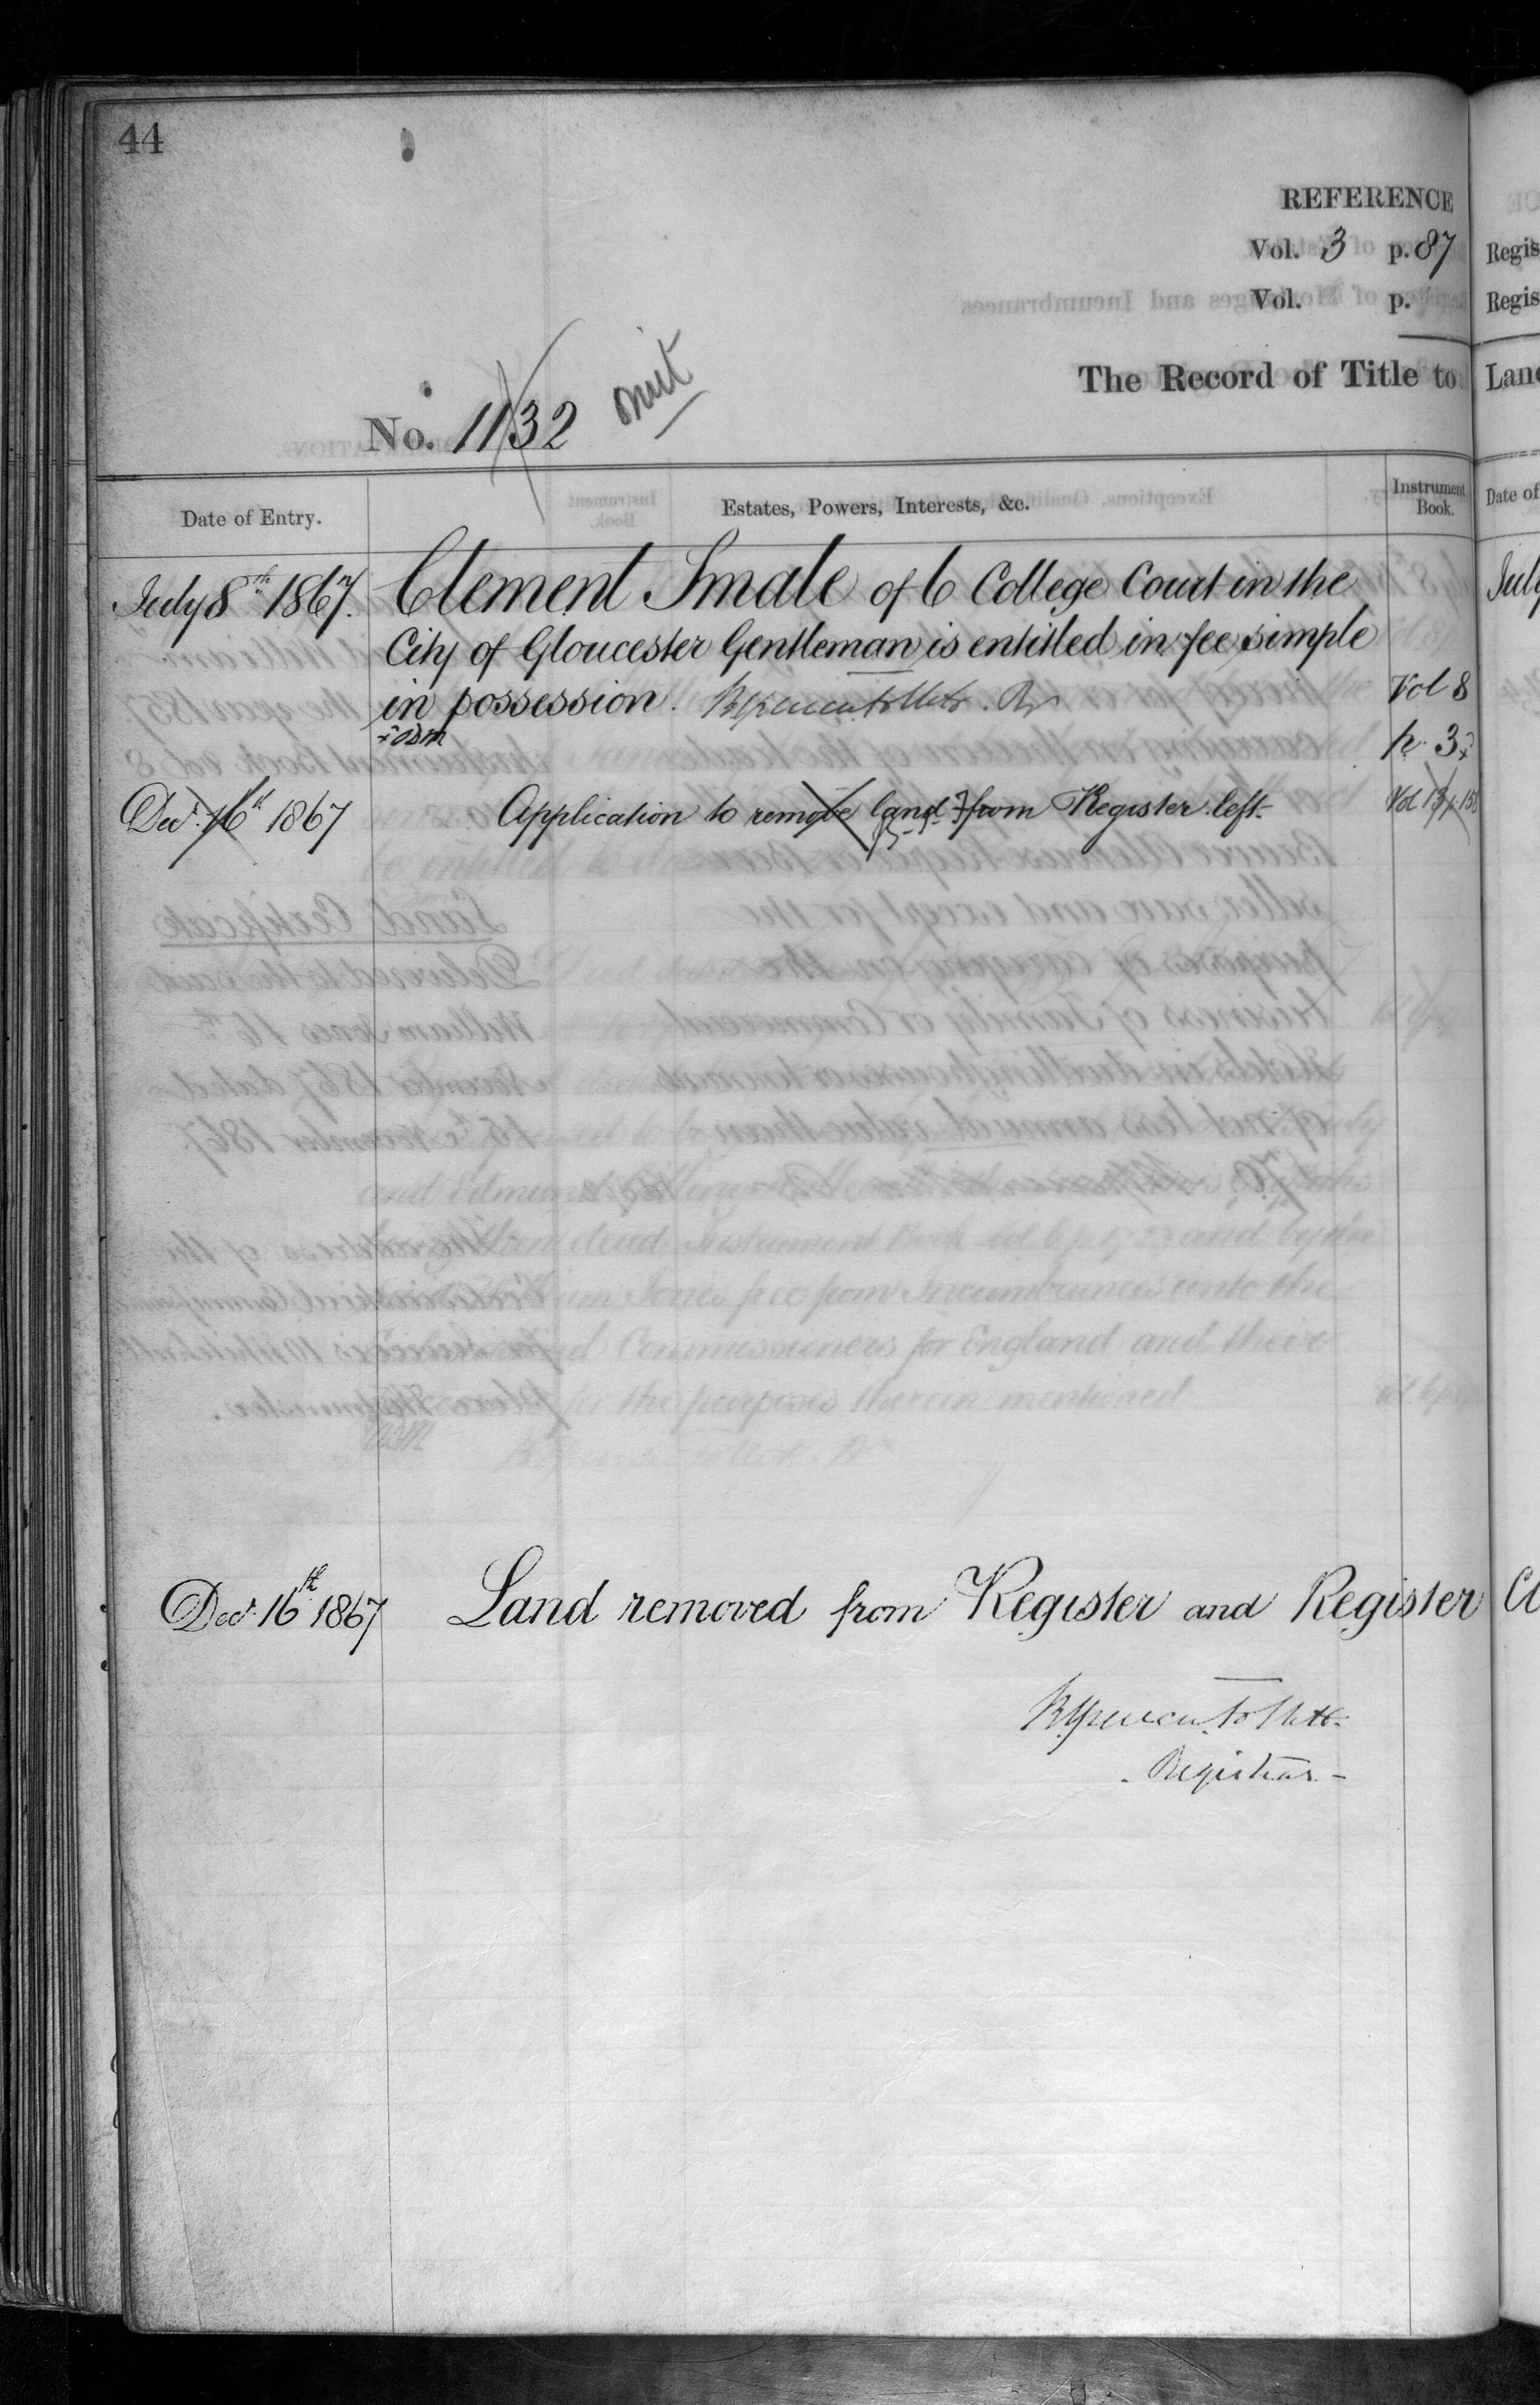 44
REFERENCE
Vol. 3 p. 87
Vol. p.
The Record of Title to
No. 1132 omit
Date of Entry. Estates, Powers, Interests, &c. Instrument Book.
July 8th 1867. Clement Smale of 6 College Court in the
City of Gloucester Gentleman is entitled in fee simple
in possession. Vol 8
p. 3
Decr. 16th 1867 Application to remove land from Register left. Vol 13 p. 151
Decr. 16th 1867 Land removed from Register and Register
Registrar
Regis
Regis
Land
Date of
July
Cl